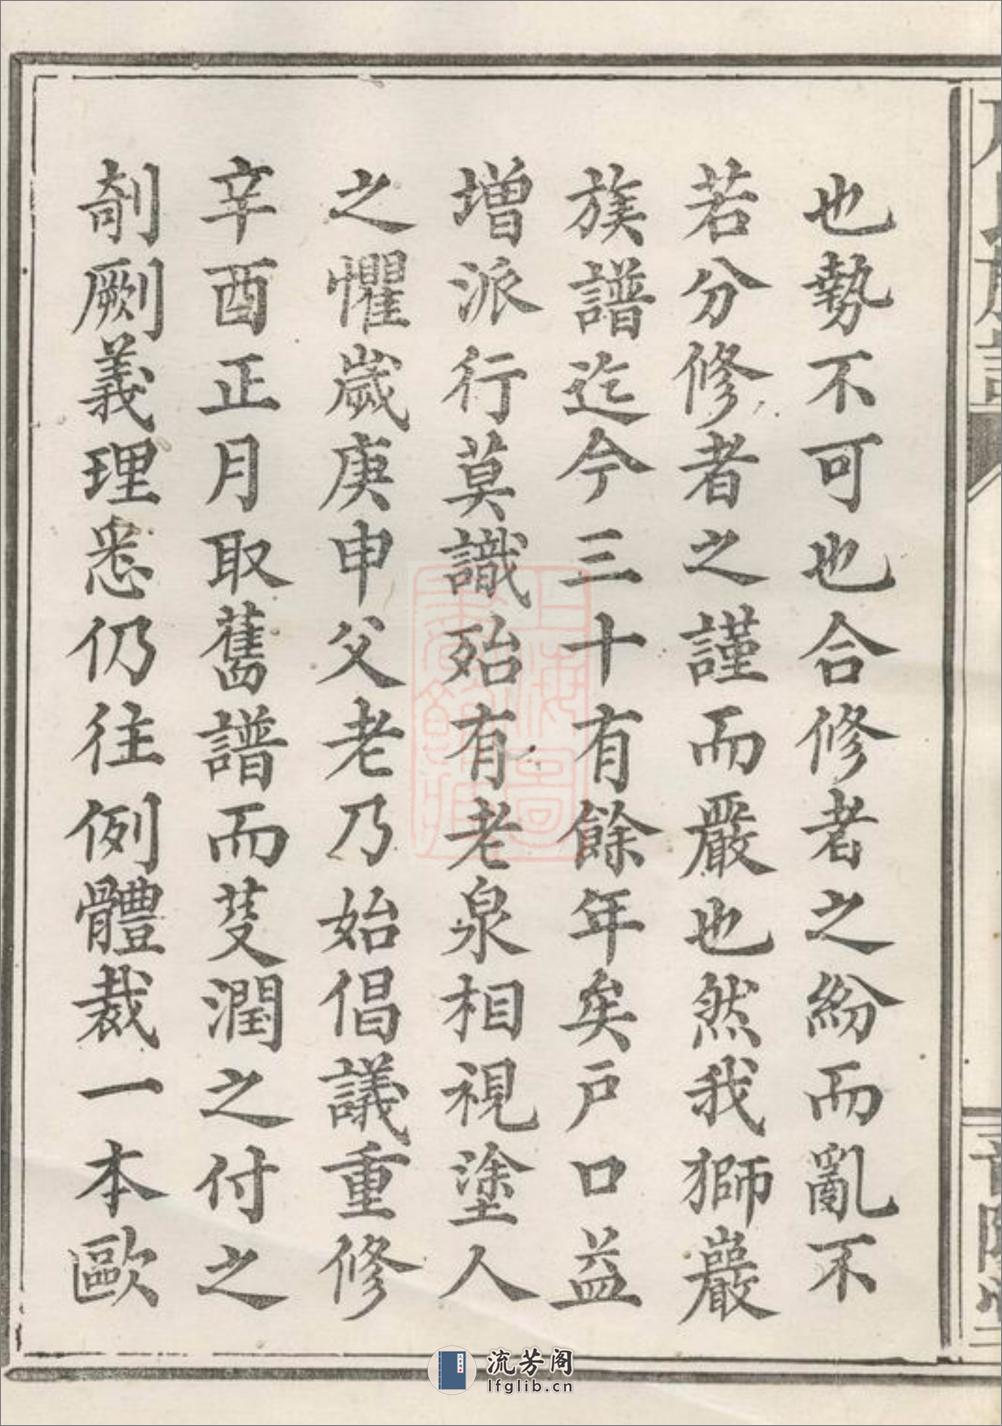 也勢不可也合修者之紛而亂不
若分修者之謹而嚴也然我獅巖
族譜迄今三十有餘年矣戶口益
增派行莫識殆有老泉相視塗人
之懼歲庚申父老乃始倡議重修
辛酉正月取舊譜而芟潤之付之
剞劂義理悉仍往例體裁一本歐
流芳阁
lfglib.cn